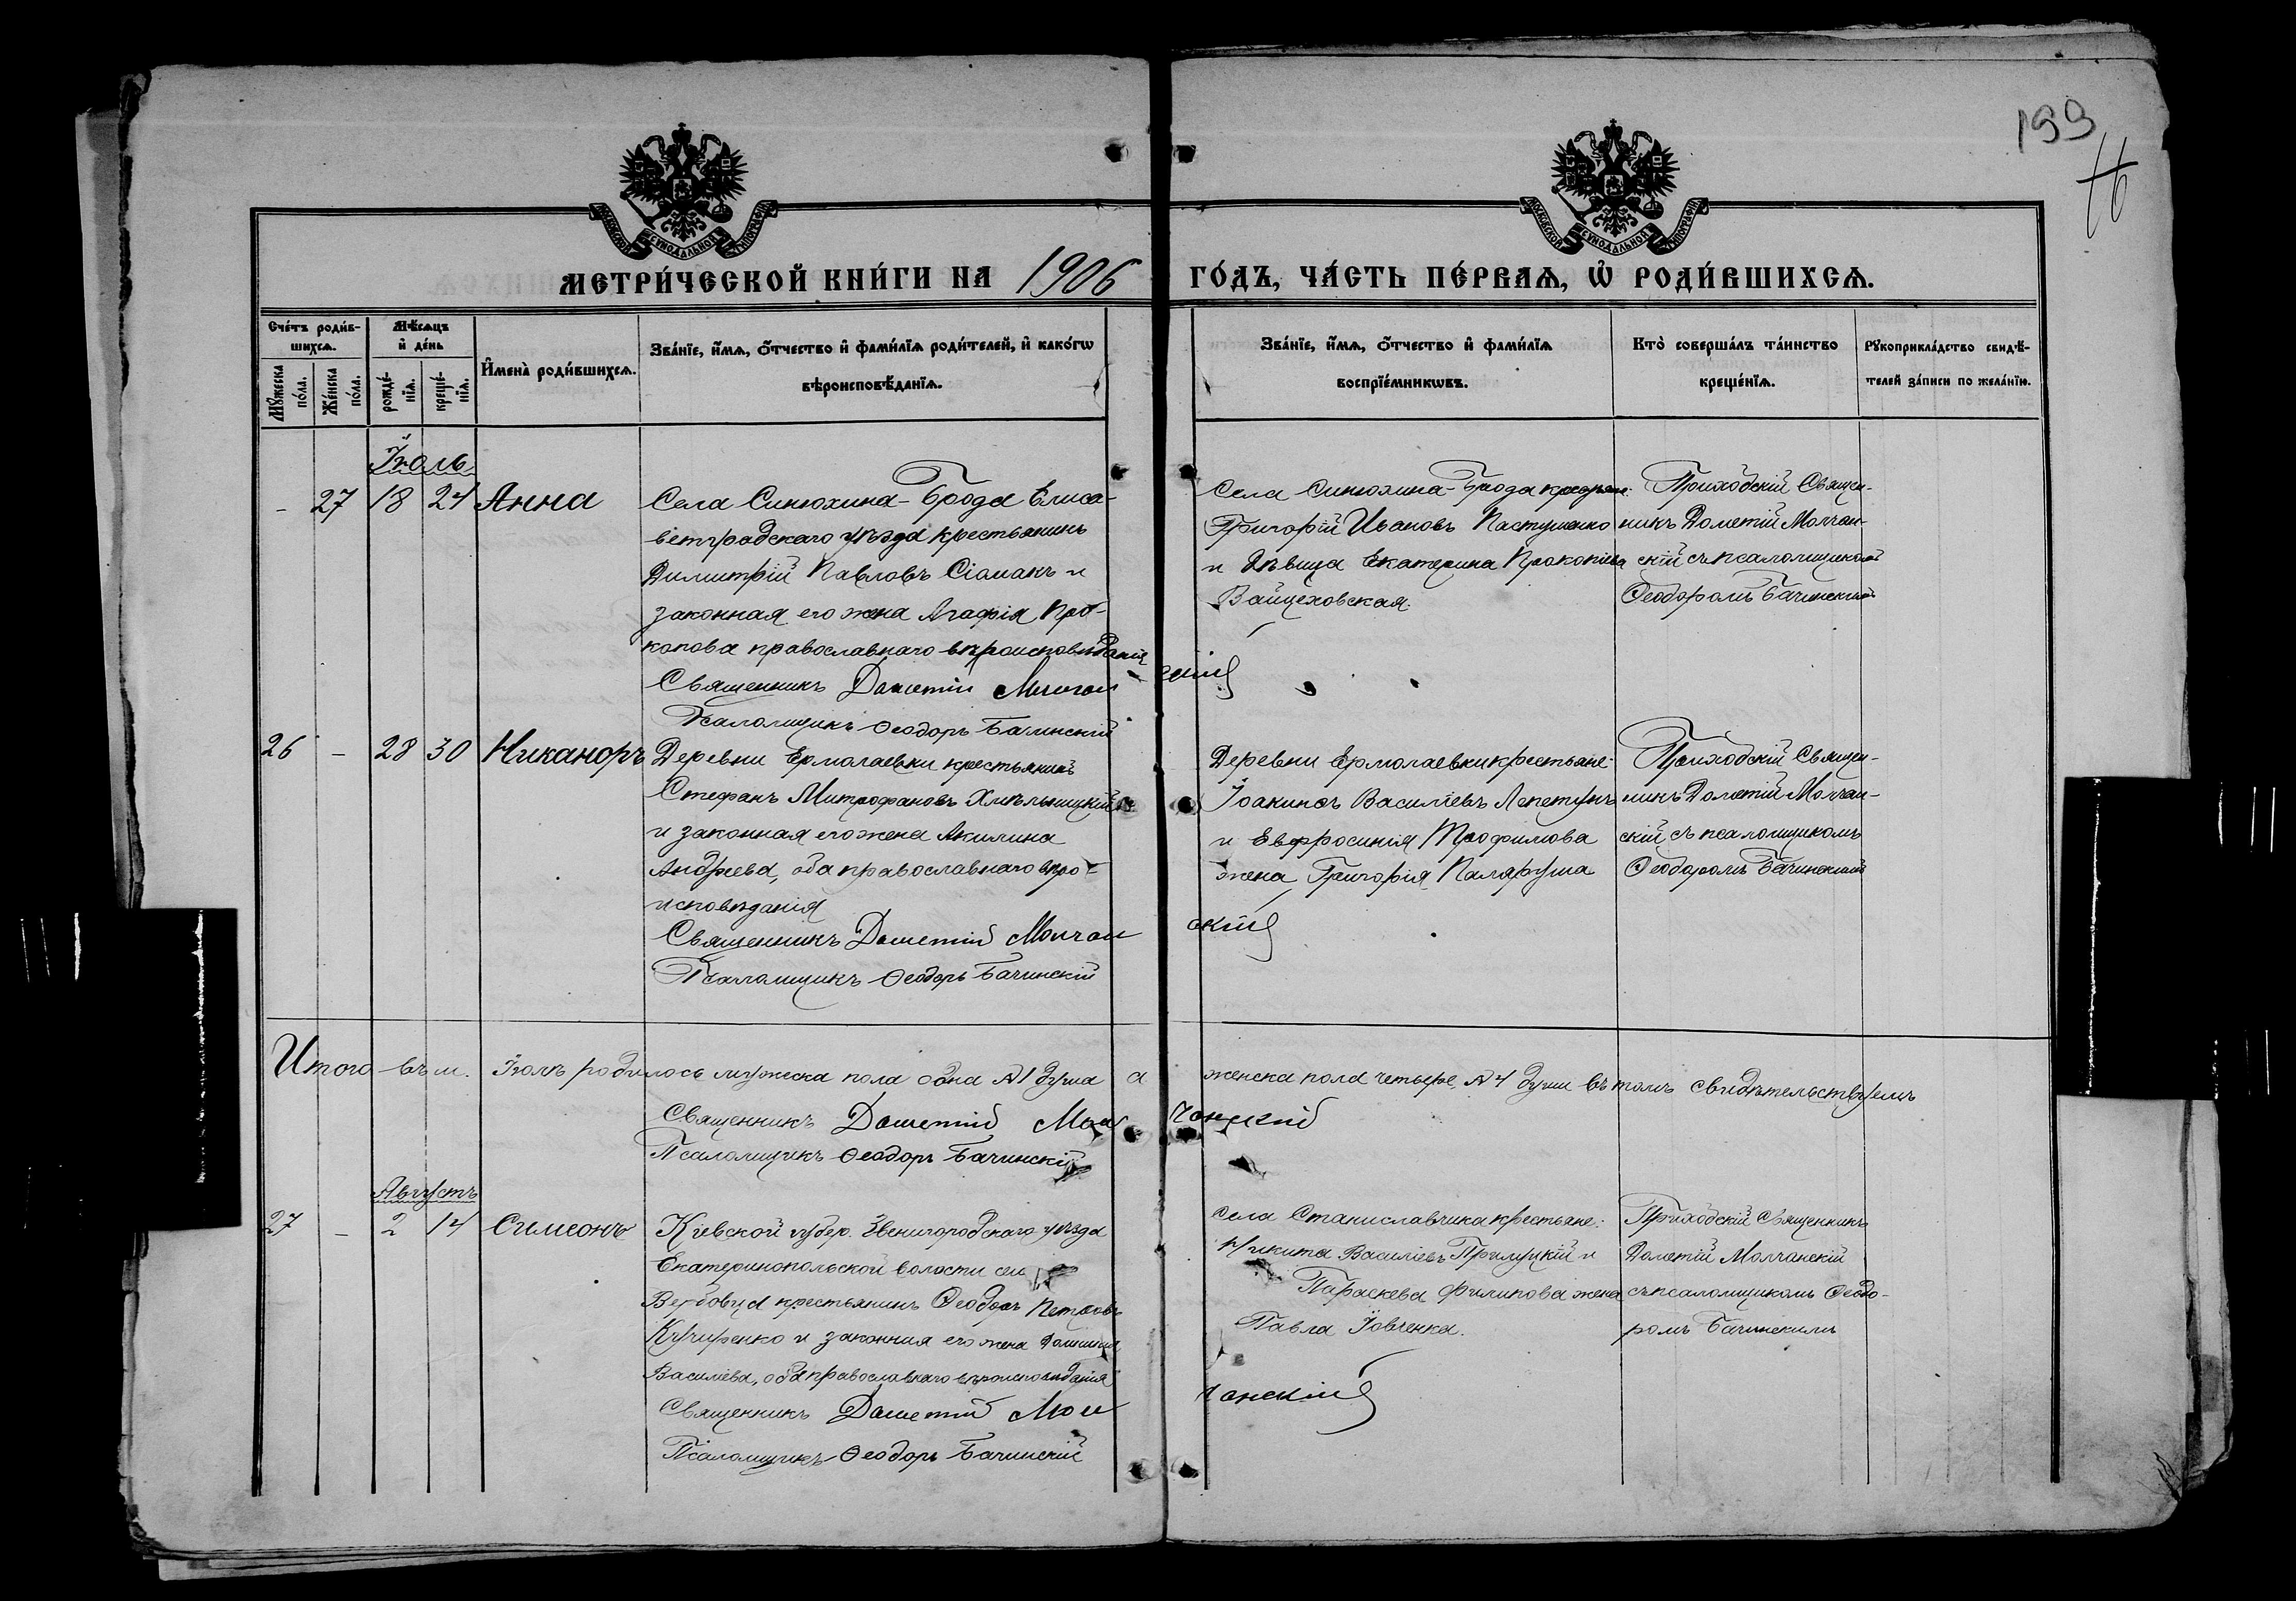 199
МОСКОВСКОЙ СѴНОДАЛЬНОЙ ТИПОГРАФІИ
МОСКОВСКОЙ СѴНОДАЛЬНОЙ ТИПОГРАФІИ
МЕТРИ́ЧЕСКОЙ КНИ́ГИ НА 1906 ГО́ДЪ, ЧА́СТЬ ПЕ́РВАѦ, Ѡ РОДИ́ВШИХСѦ.
Сче́тъ роди́в-
шихсѧ.
Мꙋ́жеска по́ла.
Же́нска по́ла.
Мѣ́сѧцъ
и҆ де́нь
рожде́-
нїѧ.
креще́-
нїѧ.
И҆мена̀ роди́вшихсѧ.
Зва́нїе, и҆́мѧ, ѻ҆́тчество и҆ фамѝлїѧ роди́телей, и҆ како́гѡ
вѣроисповѣ́данїѧ.
Зва́нїе, и҆́мѧ, ѻ҆́тчество и҆ фами́лїѧ
воспрїе́мникѡвъ.
Кто̀ соверша́лъ та́инство
креще́нїѧ.
Рꙋкоприкла́дство свидѣ́-
телей за́писи по жела́нїю.
Іюль
- 27 18 24 Анна
Села Синюхина-Брода Елиса-
ветградскаго уѣзда крестьянинъ
Димитрій Павловъ Сіомакъ и
законная его жена Агафія Про-
копова православнаго вѣроисповѣданія
Священникъ Дометій Молчанскій
Псаломщикъ Ѳеодоръ Бачинскій
Села Синюхина-Брода крестьяне:
Григорій Ивановъ Пастушенко
и дѣвица Екатерина Прокопіева
Войцеховская.
Приходскій Священ-
никъ Дометій Молчан-
скій съ псаломщикомъ
Ѳеодоромъ Бачинскимъ
26 - 28 30 Никаноръ
Деревни Ермолаевки крестьянинъ
Стефанъ Митрофановъ Хмѣльницкій
и законная его жена Акилина
Андреева, оба православнаго вѣро-
исповѣданія
Священникъ Дометій Молчанскій
Псаломщикъ Ѳеодоръ Бачинскій
Деревни Ермолаевки крестьяне:
Іоакимъ Василіевъ Лепетунъ
и Евфросинія Трофимова
жена Григорія Паляруша
Приходскій Священ-
никъ Дометій Молчан-
скій съ псаломщикомъ
Ѳеодоромъ Бачинскимъ
Итого въ м. Іюлѣ родилось мужеска пола одна № 1 душа а женска пола четыре № 4 души въ томъ свидѣтельствуемъ
Священникъ Дометій Молчанскій
Псаломщикъ Ѳеодоръ Бачинскій
Августъ
27 - 2 14 Симеонъ
Кіевской губер. Звенигородскаго уѣзда
Екатеринопольской волости
Вербовца крестьянинъ Ѳеодоръ Петровъ
Кучиренко и законная его жена
Василіева, оба православнаго вѣроисповѣданія
Священникъ Дометій Молчанскій
Псаломщикъ Ѳеодоръ Бачинскій
Села Станиславчика крестьяне:
Никита Василіевъ Прилуцкій и
Параскева Филипова жена
Павла Іовченка.
Приходскій Священникъ
Дометій Молчанскій
съ псаломщикомъ Ѳеодо-
ромъ Бачинскимъ